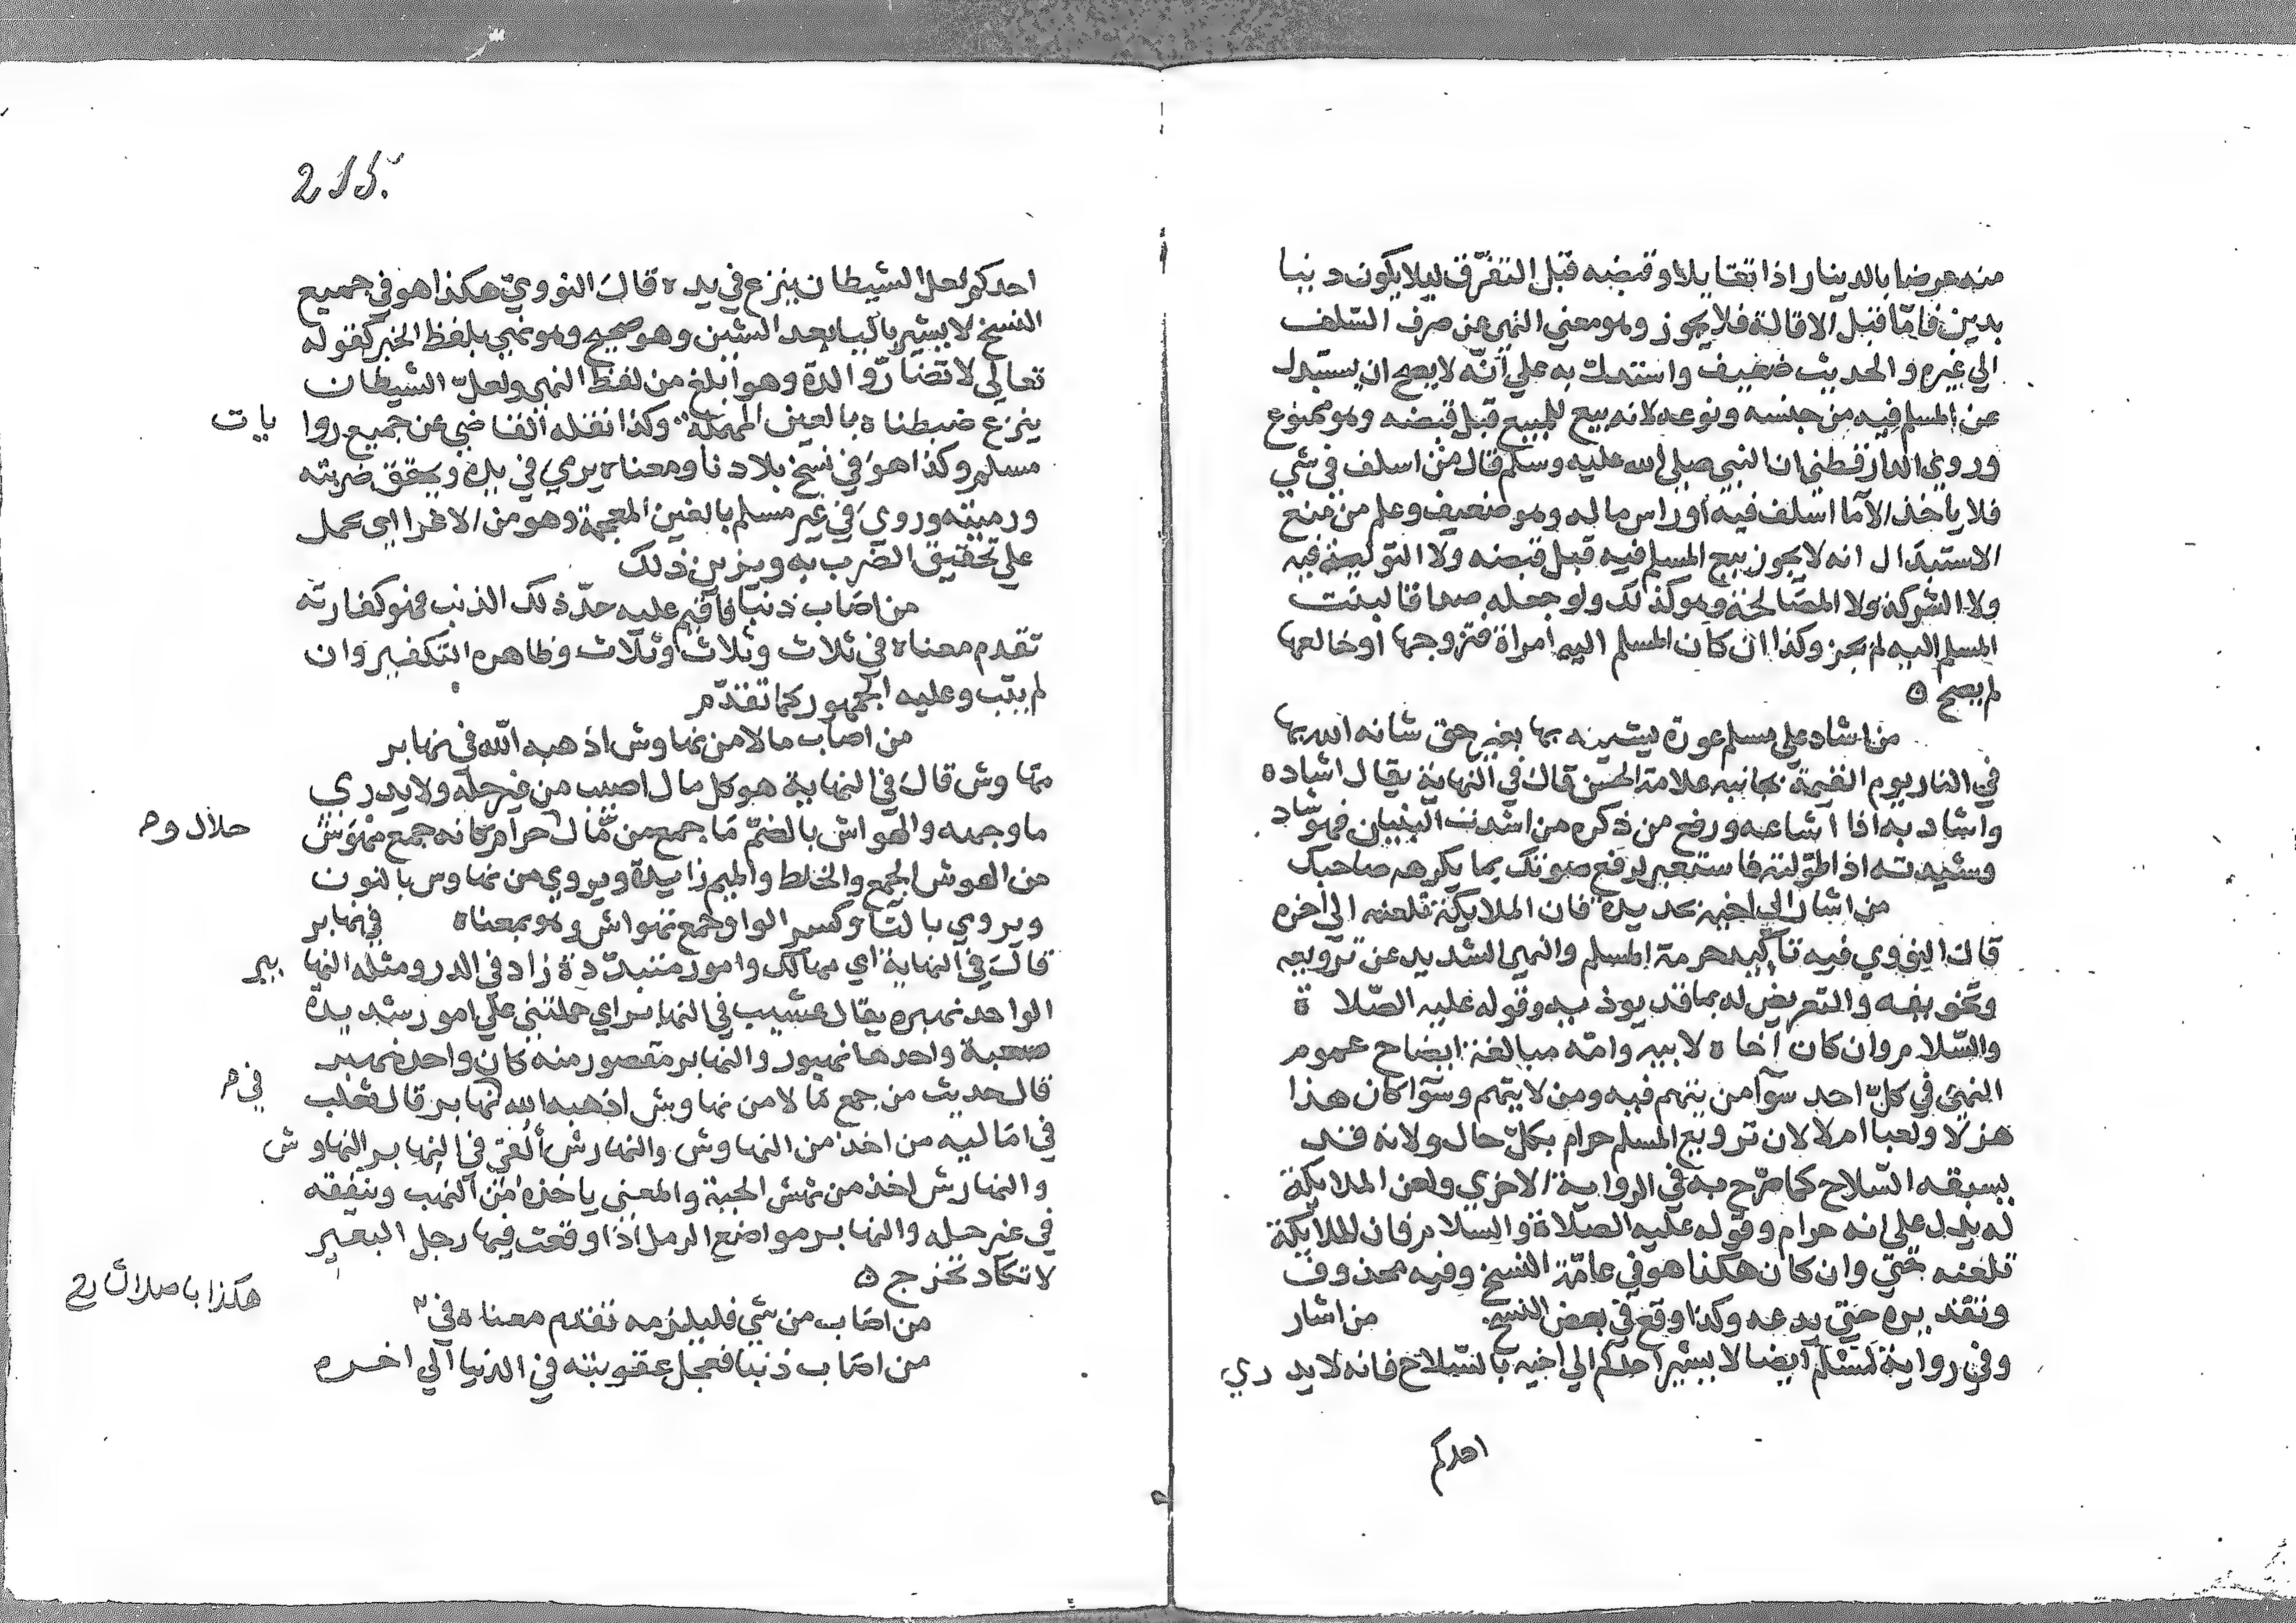 منه عرضا بالدينار اذا تقايلا وقبضه قبل التفرّق ليلا يكون دينا
بدين فامّا قبل الاقالة فلا يجوز وهو معني النهي عن صرف السّلف
الي غيره والحديث ضعيف واستدلّ به علي أنّه لا يصح ان يستبدل
عن المسلم فيه من جنسه ونوعه لانه بيع للمبيع قبل قبضه وهو ممنوع
وروي الدارقطني ان النبي صلى الله عليه وسلم قال من اسلف في شي
فلا ياخذ الاّ ما اسلف فيه اوراس ماله وهو ضعيف وعلم من منع
الاستبدال انه لا يجوز بيع المسلم فيه قبل قبضه ولا التولية فيه
ولا الشركة ولا المصالحة وهو كذلك ولو جعله صداقا لبنت
المسلم اليه لم يجز وكذا ان كان المسلم اليه امراة فتزوجها او خالعها
لم يصح ٥
من اشاد علي مسلم عورة يشينه بها بغير حق شانه الله بها
في النار يوم القيمة بجانبه علامة الحسن قال في النهاية يقال اشاده
واشاد به اذا اشاعه ورفع من ذكره من اشدت البنيان فهو مشاد
وشيدته اذا طوّلته فاستعير لرفع صوتك بما يكرهه صاحبك
من اشار الي اخيه بحديدة فان الملايكة تلعنه الي اخره
قال النووي فيه تاكيد حرمة المسلم والنهي الشديد عن ترويعه
وتخويفه والتعريض له بما قد يوذيه وقوله عليه الصّلاة
والسّلام وان كان اخاه لابيه وامّه مبالغة ايضاح عموم
النهي في كلّ احد سوآ من يتهم فيه ومن لا يتهم وسوآ كان هذا
هزلا ولعبا ام لا لان ترويع المسلم حرام بكلّ حال ولانه قد
يسبقه السّلاح كما صرّح به في الرواية الاخري ولعن الملايكة
له يدل على انه حرام وقوله عليه الصّلاة والسّلام فان الملايكة
تلعنه حتّي وان كان هكذا هو في عامّة النسخ وفيه محذوف
وتقديره حتي يدعه وكذا وقع في بعض النسخ من اشار
وفي رواية لمسلم ايضا لا يشير احدكم الي اخيه بالسّلاح فانه لا يدري
احدكم
215
احدكم لعل الشيطان ينزع في يده قال النوويّ هكذا هو في جميع
النسخ لا يشير باليا بعد الشين وهو صحيح وهو نهي بلفظ الخبر كقوله
تعالي لا تضارّ والدة وهو ابلغ من لفظ النهي ولعلّ الشيطان
ينزع ضبطناه بالعين المهملة وكذا نقله القاضي عن جميع روايات
مسلم وكذا هو في نسخ بلادنا ومعناه يرمي في يده ويحقق ضربته
ورميته وروي في غير مسلم بالغين المعجمة وهو من الاغرا اي يحمل
علي تحقيق الضرب به ويزين ذلك
من اصاب ذنبا فاقيم عليه حدّ ذلك الذنب فهو كفارته
تقدم معناه في ثلاث وثلاث وثلاث وظاهره التكفير وان
لم يتب وعليه الجمهور كما تقدّم
من اصاب مالا من نهاوش اذهبه الله في نهابر
مهاوش قال في النهاية هو كل مال اصيب من غير حلّه ولا يدري
ما وجهه والهواش بالضمّ ما جمع من مال حرام كانه جمع مهوش
حلال وم
من الهوش الجمع والخلط والميم زايدة ويروي من نهاوس بالنون
ويروي بالتا وكسر الواو جمع تهواش وهو بمعناه في نهابر
قال في النهاية اي مهالك وامور متبددة زاد في الدر ومثله النهابير
الواحد نهبره يقال غشيت في النهابر اي حملتني علي امور شديدة
صعبة واحدها نهبور والنهابر مقصور منه كان واحده نهبر
في م
قال حديث من جمع مالا من نهاوش اذهبه الله نهابر قال ثعلب
في اماليه من اخذ من النهاوش والنهارش ألقي في النهابر النهاوش
والنهارش اخذ من نهش الحية والمعني ياخذه من النهب وينفقه
في غير حله والنهابر مواضع الرمل اذا وقعت فيها رجل البعير
لا تكاد تخرج ٥
من اصاب من شي فليلزمه تقدم معناه في
من اصاب ذنبا فعجل عقوبته في الدنيا الي اخره